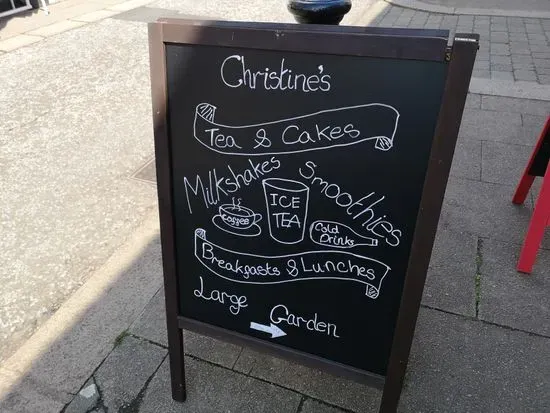 Christine's
Tea & Cakes
Milkshakes
Smoothies
Coffee
ICE
TEA
Cold
Drinks
Breakfasts & Lunches
Large
Garden